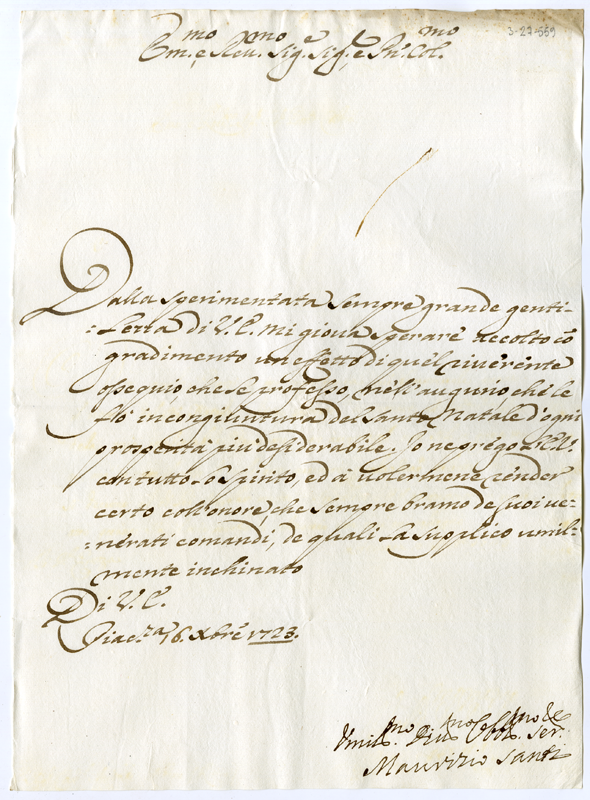 3-27-559
Em.mo e Rev.mo Sig.e Sig.e e Pn. Col.mo
Dalla sperimentata sempre grande genti-
=lezza di V.E. mi giova sperare accolto cõ
gradimento un effetto di quel riverente
ossequio, che le professo, nell'augurio che le
fò in congiuntura del Santo Natale d'ogni
prosperità più desiderabile. Io ne prego
con tutto lo spirito, ed à volermene render
certo coll'onore, che sempre bramo de suoi ve-
=nerati comandi, de quali la supplico umil-
mente inchinato
Di V.E.
Piac.za 6. Xbre 1723.
Umil.mo Div.mo Obbl.mo Ser.
Maurizio Santi